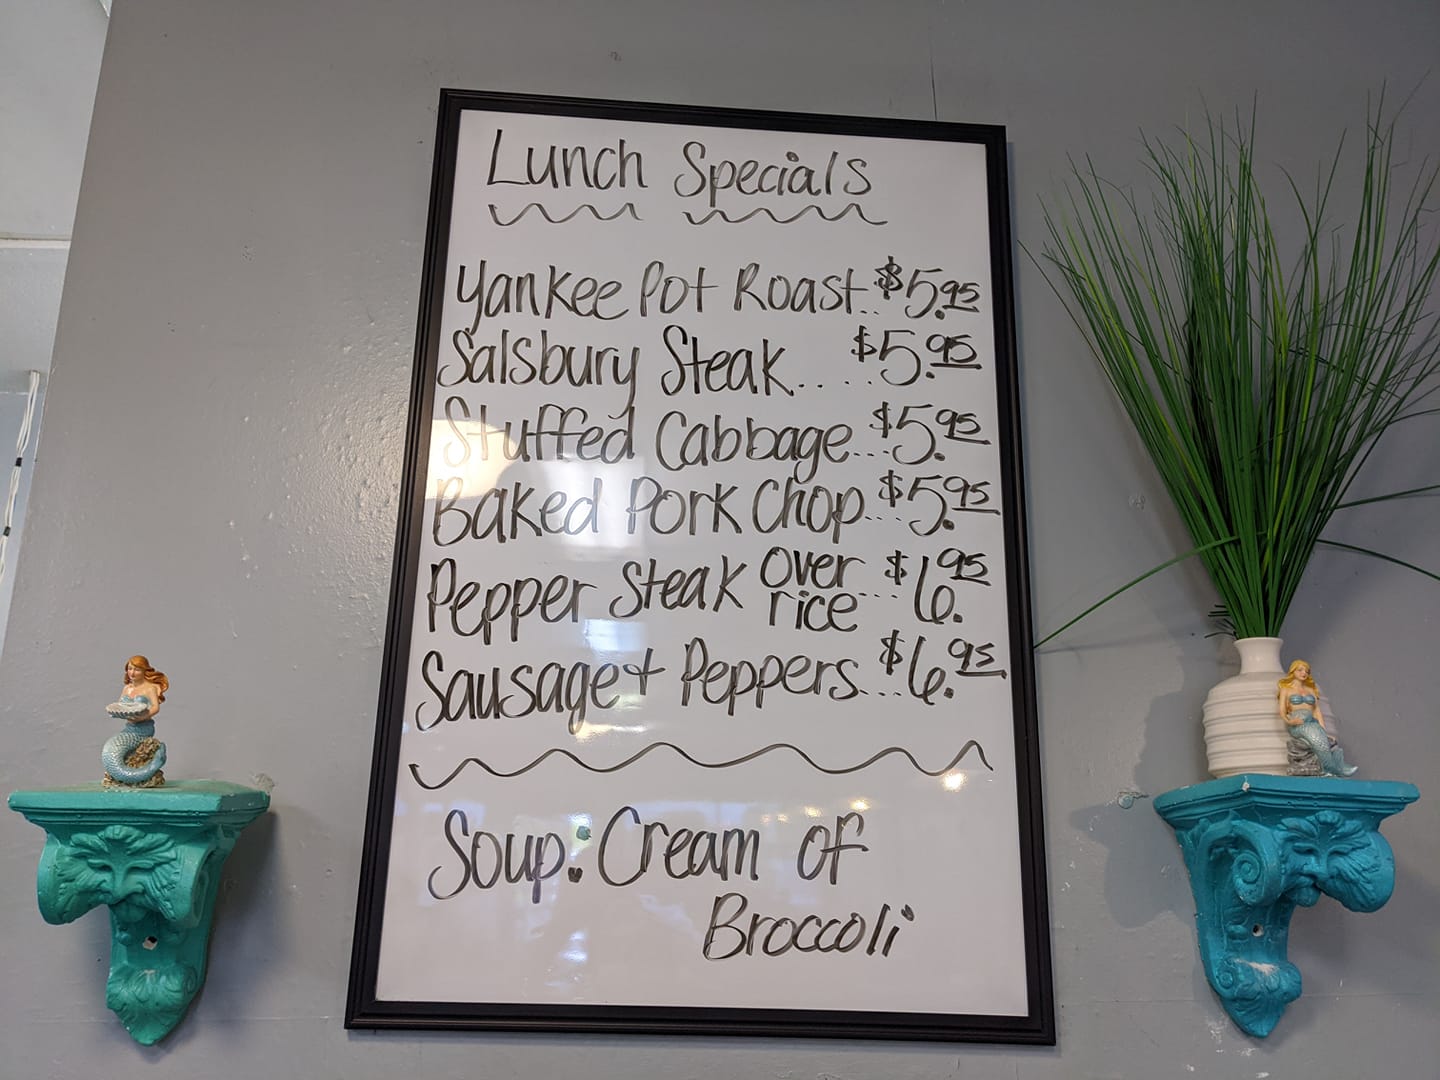 Lunch Specials
Yankee Pot Roast..$5.95
Salsbury Steak.....$5.95
Stuffed Cabbage...$5.95
Baked Pork Chop...$5.95
Pepper Steak over rice...$6.95
Sausage + Peppers...$6.95
Soup: Cream of
Broccoli